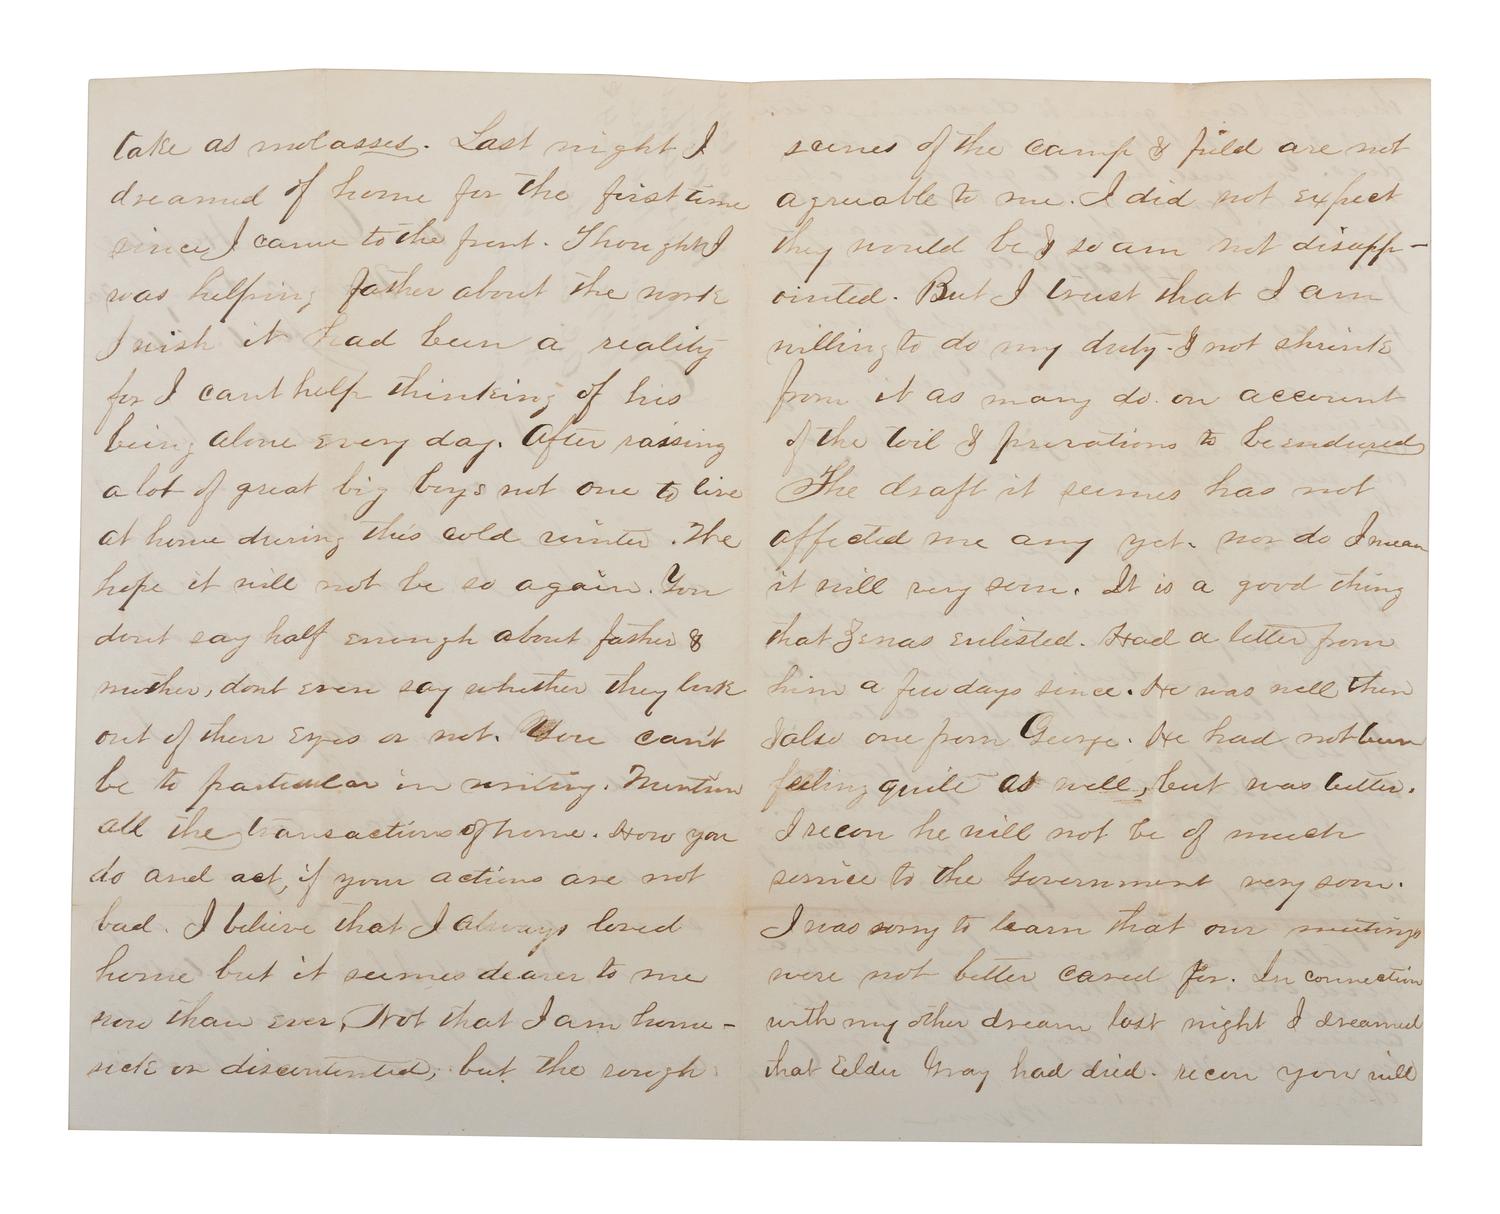 take as molasses. Last night I
dreamed of home for the first time
since I came to the front. Thought I
was helping father about the work
I wish it had been a reality
for I cant help thinking of his
being alone every day. After raising
a lot of great big boys not one to live
at home during this cold winter. We
hope it will not be so again. You
dont say half enough about father &
mother, dont even say whether they look
out of their eyes or not. You can't
be to particular in writing. Mention
all the transactions of home. How you
do and act, if your actions are not
bad. I believe that I always loved
home but it seemes dearer to me
now than ever, Not that I am home-
sick or discontented, but the rough
scenes of the camp & field are not
agreeable to me. I did not expect
they would be & so am not disapp-
ointed. But I trust that I am
willing to do my duty. & not shrink
from it as many do on account
of the toil & privations to be endured
The draft it seemes has not
affected me any yet. nor do I mean
it will very soon. It is a good thing
that Zenas enlisted. Had a letter from
him a few days since. He was well then
& also one from George. He had not been
feeling quite as well, but was better.
I recon he will not be of much
service to the Government very soon.
I was sorry to learn that our meetings
were not better cared for. In connection
with my other dream last night I dreamed
that Eelder Gray had died. recon you will